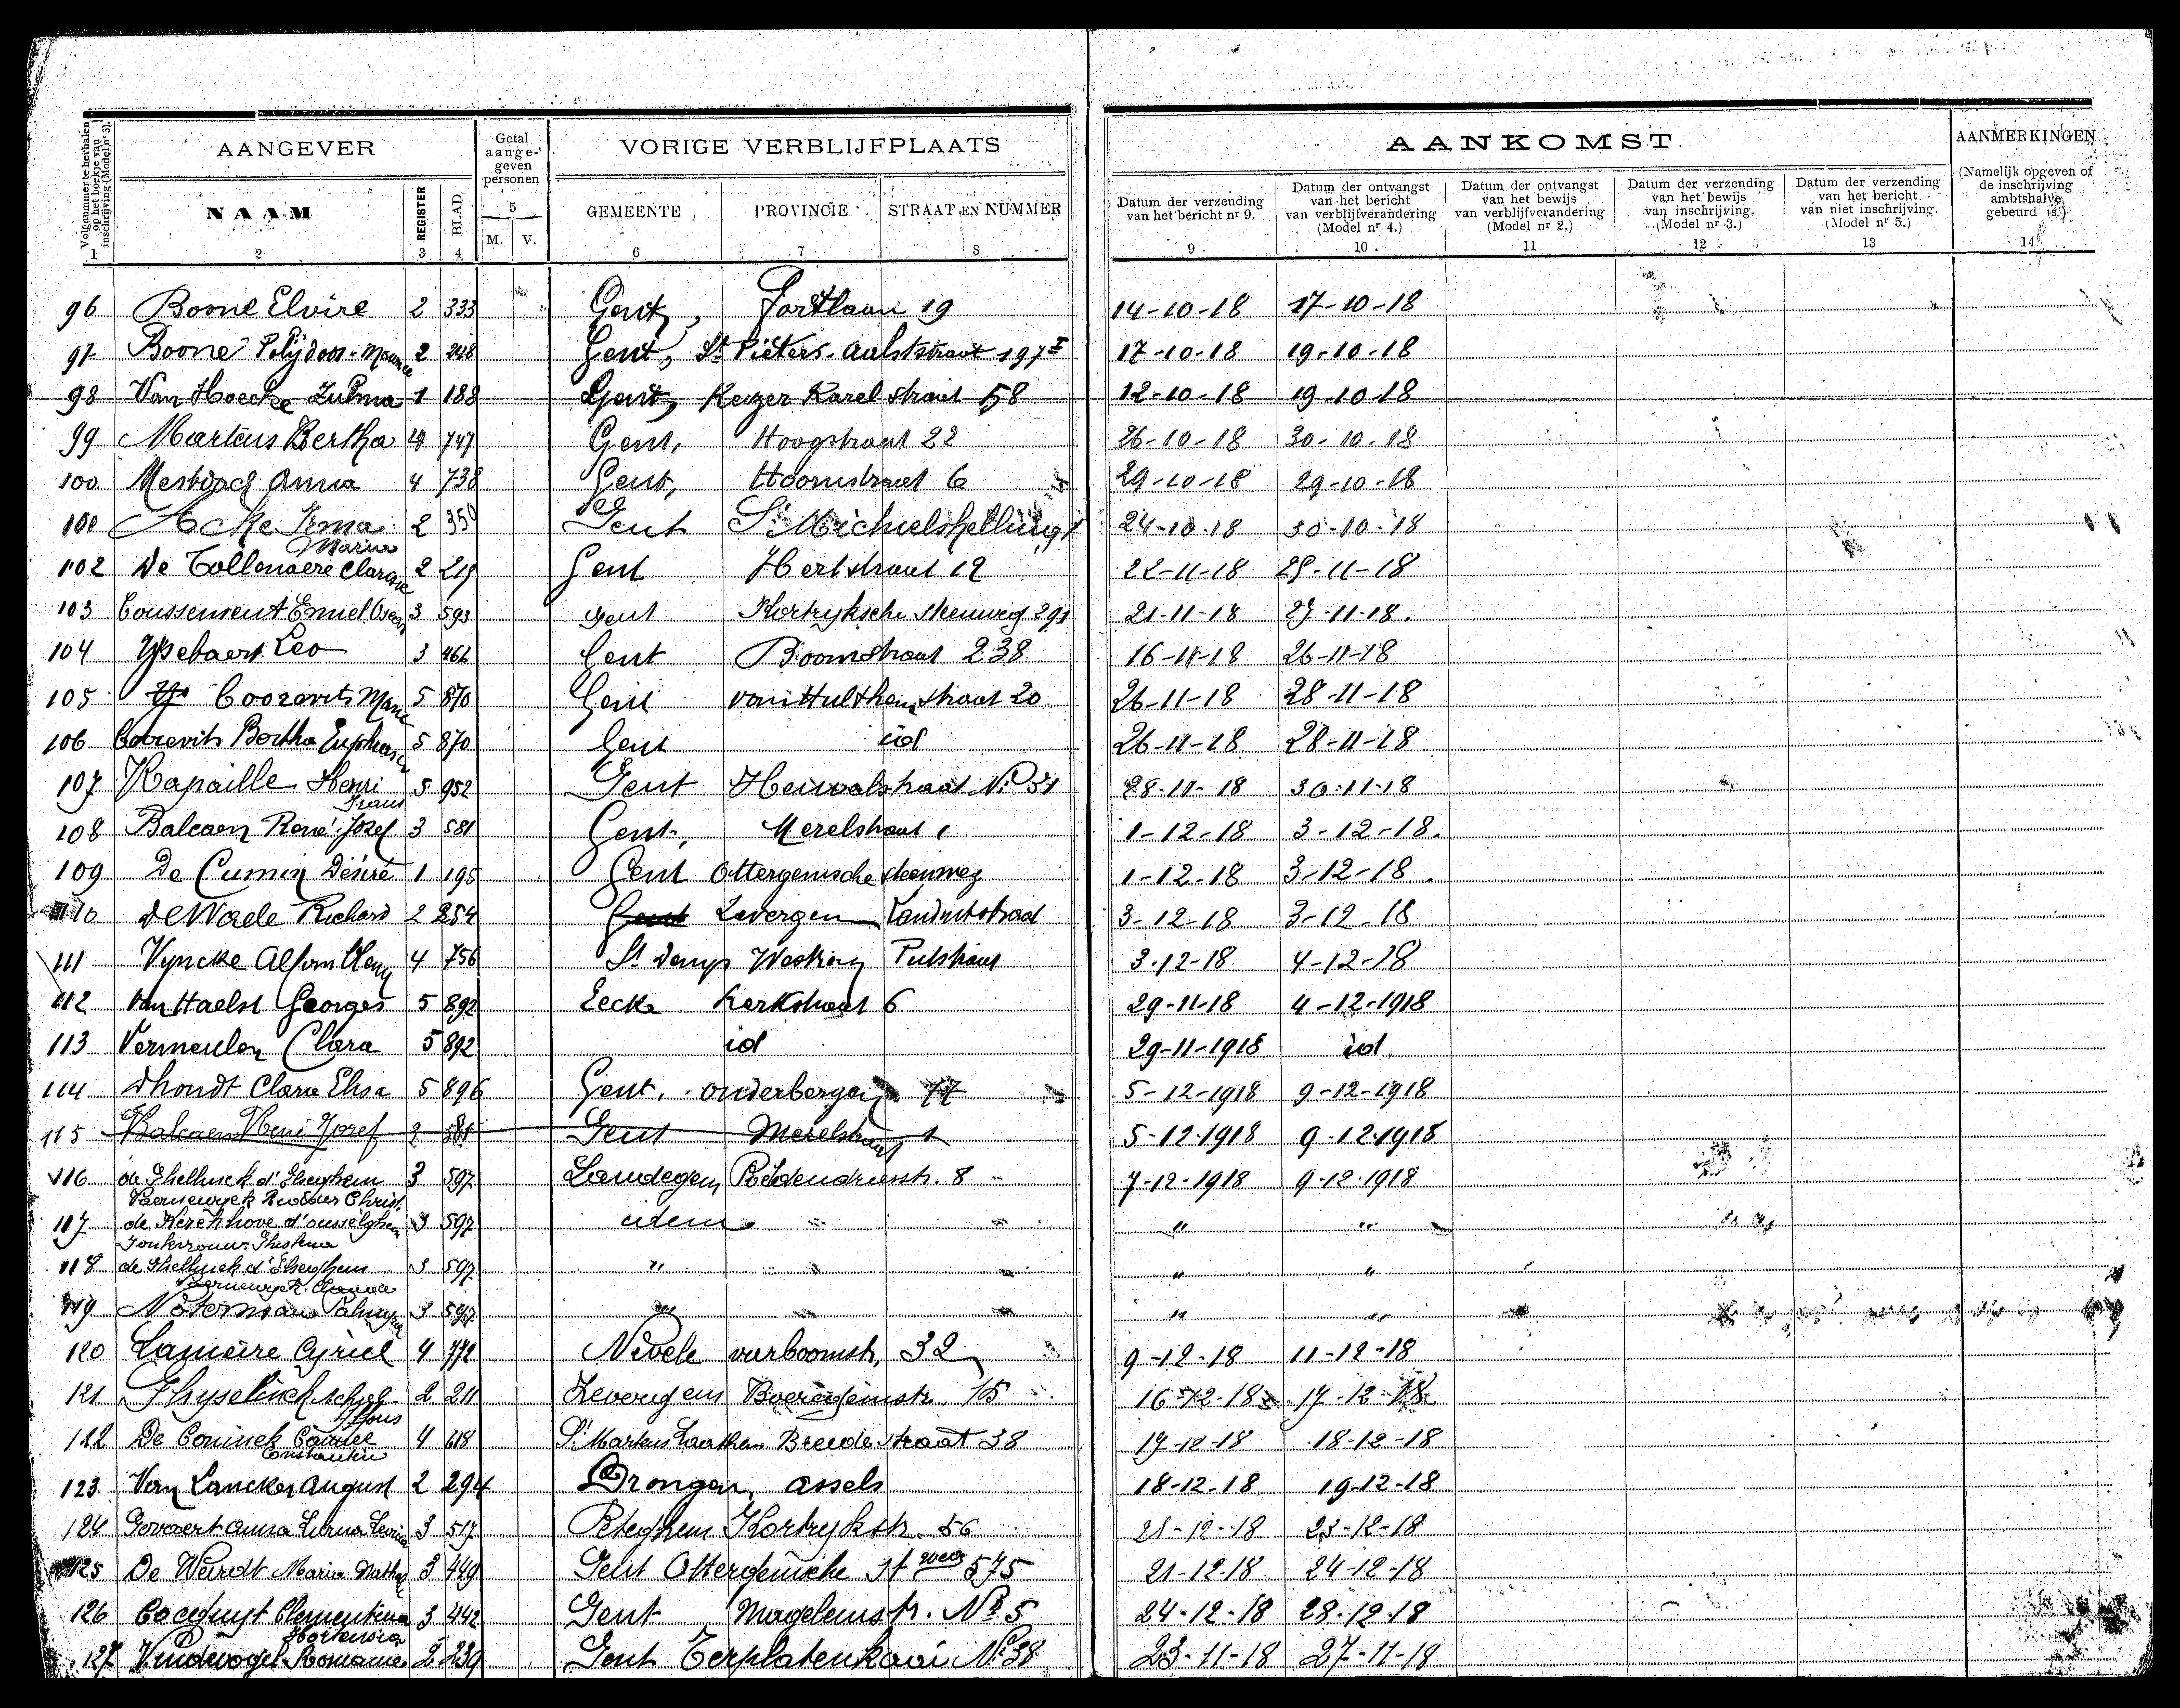 Volgnummer te herhalen op het boekje van inschrijving (Model nr 3).
AANGEVER
Getal aange-geven personen
VORIGE VERBLIJFPLAATS
AANKOMST
AANMERKINGEN
(Namelijk opgeven of de inschrijving ambtshalve gebeurd is.)
NAAM REGISTER BLAD
5
M. V.
GEMEENTE PROVINCIE STRAAT EN NUMMER
Datum der verzending van het bericht nr 9.
Datum der ontvangst van het bericht van verblijfverandering (Model nr 4.)
Datum der ontvangst van het bewijs van verblijfverandering (Model nr 2.)
Datum der verzending van het bewijs van inschrijving. (Model nr 3.)
Datum der verzending van het bericht van niet inschrijving. (Model nr 5.)
1 2 3 4 6 7 8 9 10 11 12 13 14
96 Boone Elvire 2 333 Gent, Fortlaan 19 14-10-18 17-10-18
97 Boone Polydoor-Maurice 2 248 Gent, St Pieters-Aalststraat 197 17-10-18 19-10-18
98 Van Hoecke Zulma 1 188 Gent, Keizer Karel straat 58 12-10-18 19-10-18
99 Martens Bertha 4 747 Gent, Hoogstraat 22 26-10-18 30-10-18
100 Mestdach Anna 4 738 Gent, Hoornstraat 6 29-10-18 29-10-18
101 Acke Irma 2 350 Gent St Michielshelling 1 24-10-18 30-10-18
102 De Tollenaere Clarisse Maria 2 219 Gent Hertstraat 12 22-11-18 25-11-18
103 Coussement Emiel Oscar 3 593 Gent Kortryksche steenweg 291 21-11-18 27-11-18.
104 Ysebaert Leo 3 466 Gent Boomstraat 238 16-11-18 26-11-18
105 Coorevits Marie 5 870 Gent Van Hulthem straat 20 26-11-18 28-11-18
106 Coorevits Bertha Euphrasie 5 870 Gent id 26-11-18 28-11-18
107 Kapaille Henri Frans 5 952 Gent straat No 51 28-11-18 30-11-18
108 Balcaen René Jozef 3 581 Gent, Merelstraat 1 1-12-18 3-12-18.
109 De Cumin Désiré 1 195 Gent Ottergemsche steenweg 1-12-18 3-12-18.
110 De Waele Richard 2 254 Gent Zevergem 3-12-18 3-12-18
111 Vyncke Alfons 4 756 St Denys Westrem Putstraat 3-12-18 4-12-18
112 Van Haelst Georges 5 892 Eecke Kerkstraat 6 29-11-18 4-12-1918
113 Vermeulen Clara 5 892 id 29-11-1918 id.
114 Dhondt Clara Elisa 5 896 Gent, onderbergen 77 5-12-1918 9-12-1918
115 Balcaen René Jozef 3 581 Gent Merelstraat 1 5-12-1918 9-12-1918
116 de Ghellinck d'Elseghem 3 597 Landegem 8 - 7-12-1918 9-12-1918
Vaernewyck
117 de Kerckhove d'ousselghem 3 597 idem " " " "
Jonkvrouw Ghislena
118 de Ghellinck d'Elseghem 3 597 " " " " "
Vaernewyck Claude
119 Noterman Palmyra 3 597 " " " " "
120 Lameire Cyriel 4 772 Nevele vierboomstr, 32 9-12-18 11-12-18
121 Ghyselinck Alfons 2 211 Zeveregem 15 16-12-18 17-12-18.
122 De Coninck Camiel Constantin 4 618 St Martens Laethem Breede straat 38 17-12-18 18-12-18
123. Van Lancker August 2 294 Drongen, assels 18-12-18 19-12-18
124 Govaert Anna 3 517 Peteghem Kortrykstr. 56 21-12-18 23-12-18
125 De Weirdt Maria 3 449 Gent Ottergemsche St weg 575 21-12-18 24-12-18
126 Cocquyt Clementina Hortensia 3 442 Gent Mageleinstr. No 5 24-12-18 28-12-18
127 Vindevogel Romanie 2 239 Gent Terplatenkaai No 38 23-11-18 27-11-18